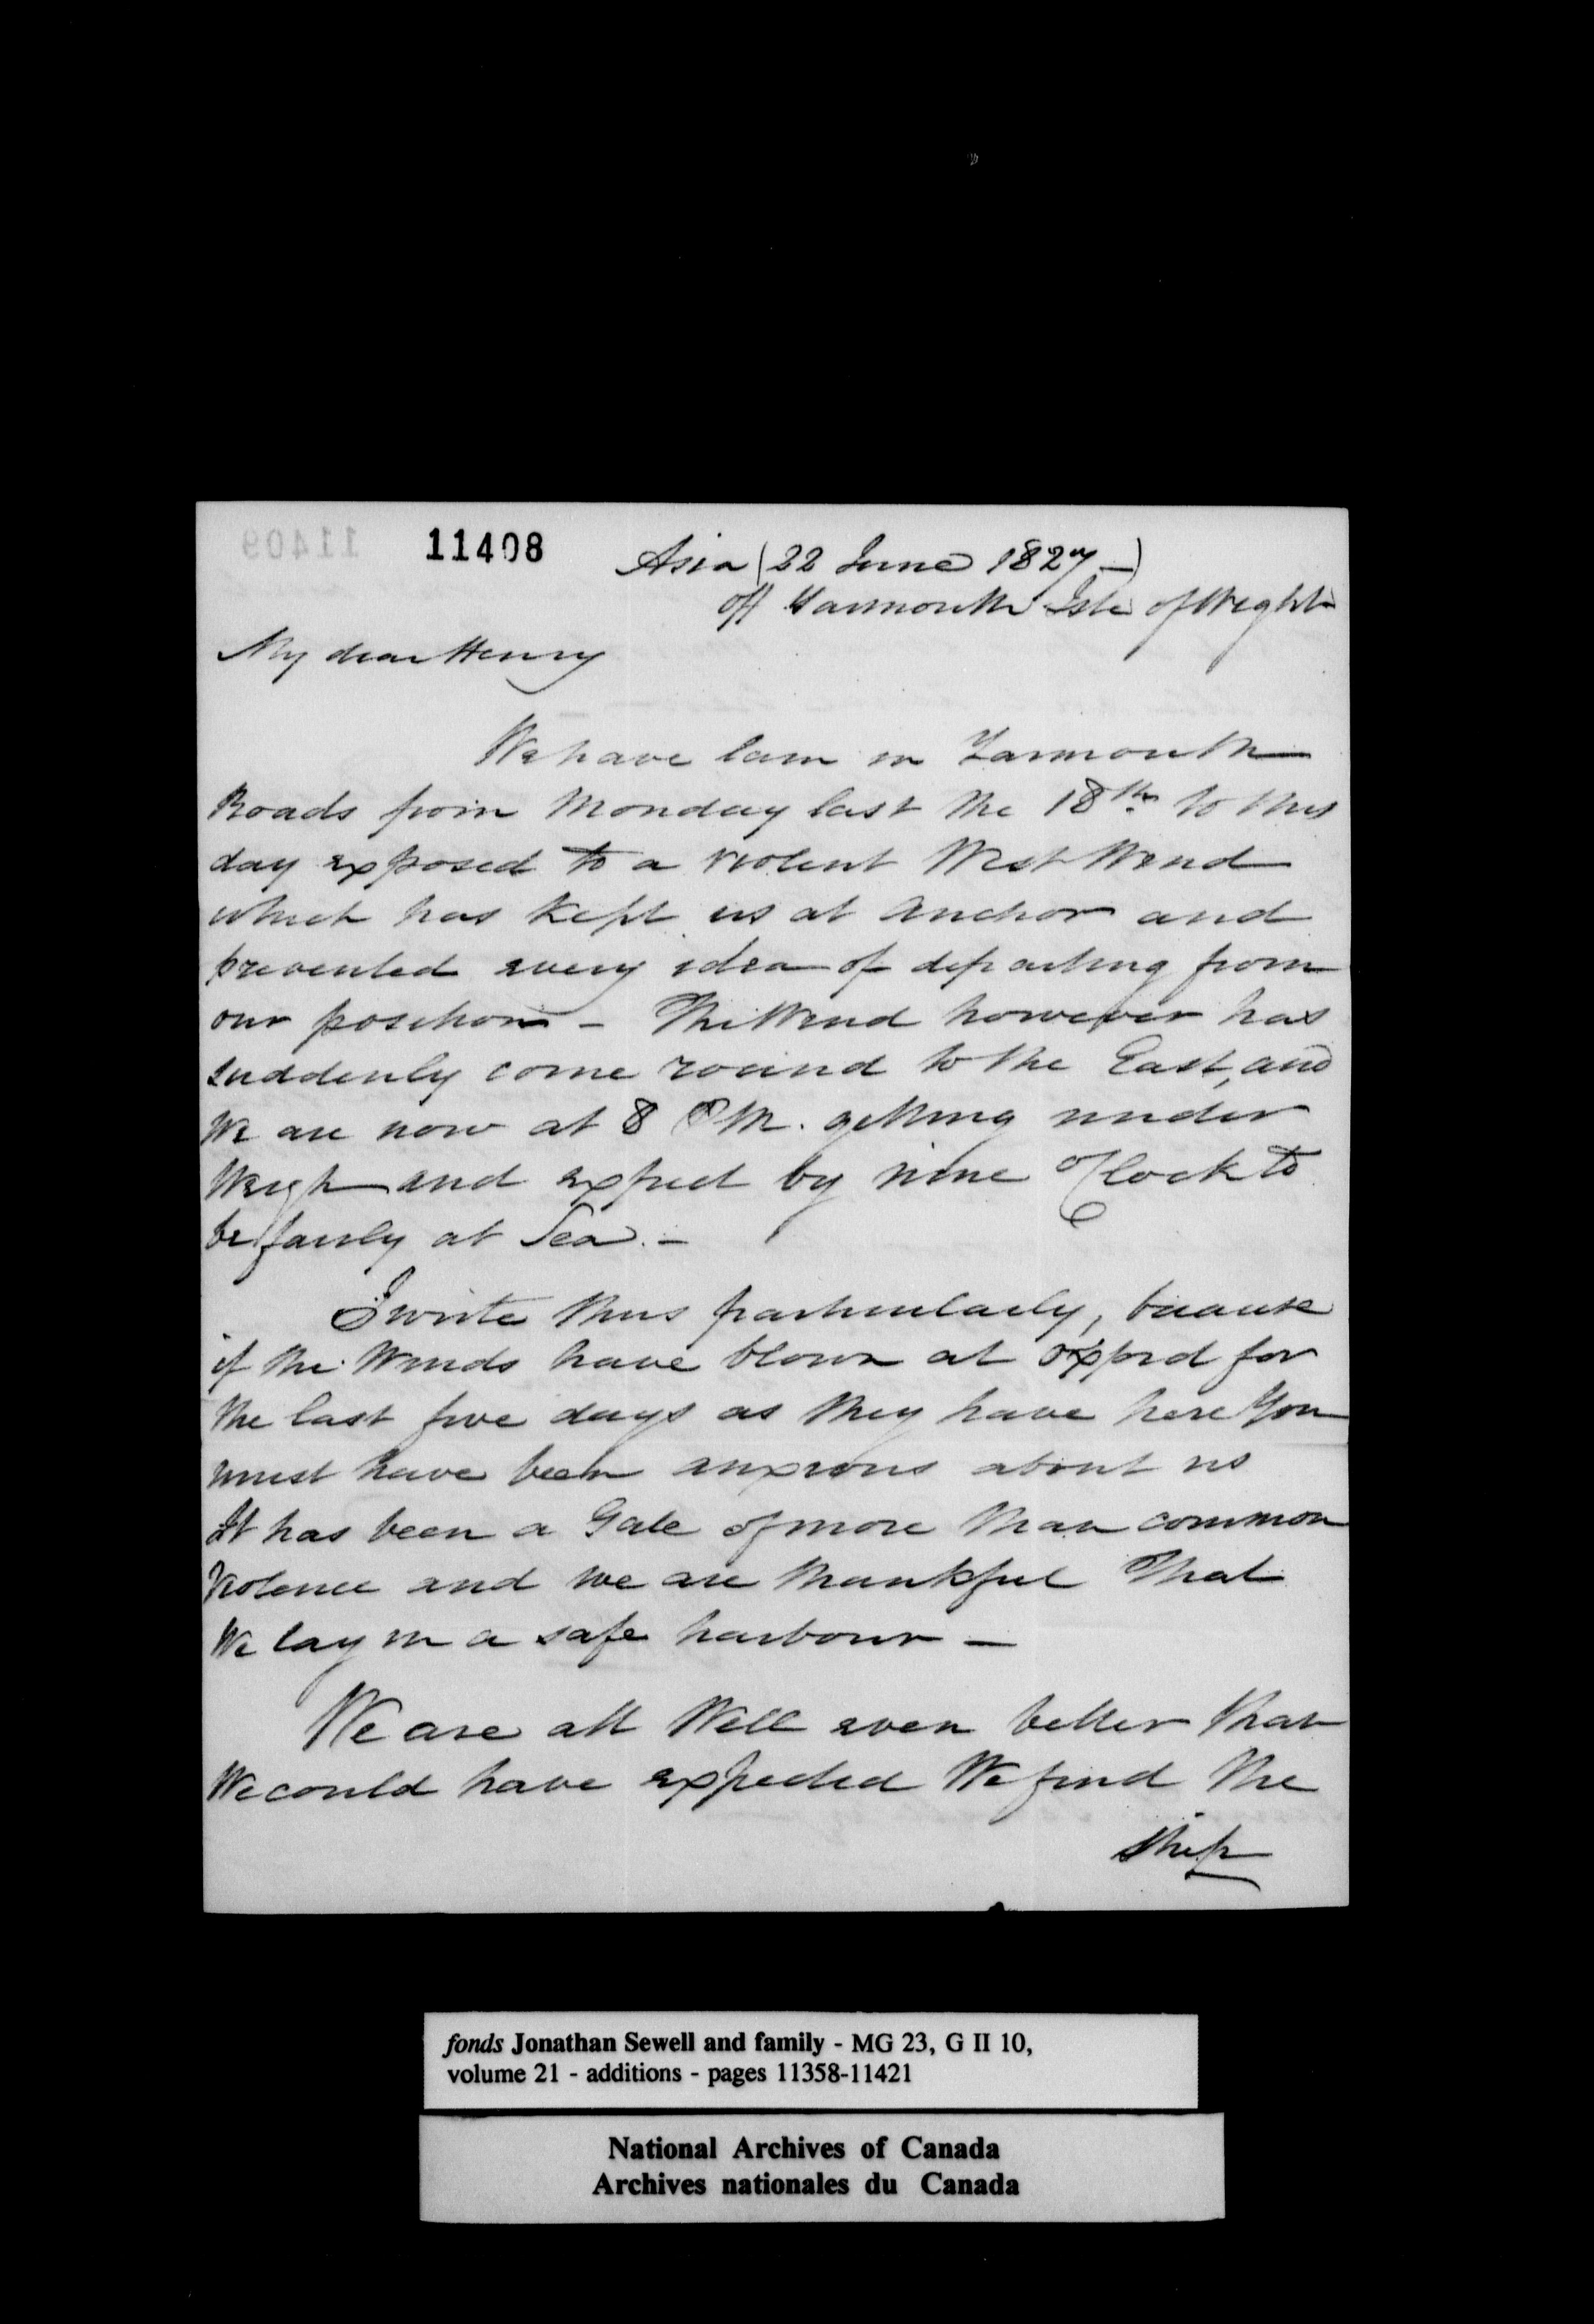 11408
Asia (22 June 1827 —)
off Yarmouth Isle of Wight
My dear Henry
We have lain in Yarmouth
Roads from Monday last the 18th to this
day exposed to a violent West Wind
which has kept us at anchor and
prevented every idea of departing from
our position – The Wind however has
suddenly come round to the East, and
We are now at 8 PM. getting under
Weigh and expect by nine oClock to
be fairly at Sea. –
I write thus particularly, because
if the Winds have blown at Oxford for
the last five days as they have here You
must have been anxious about us
It has been a Gale of more than common
Violence and we are thankful that
We lay in a safe harbour —
We are all Well even better than
We could have expected We find the
Ship
fonds Jonathan Sewell and family - MG 23, G II 10,
volume 21 - additions - pages 11358-11421
National Archives of Canada
Archives nationales du Canada